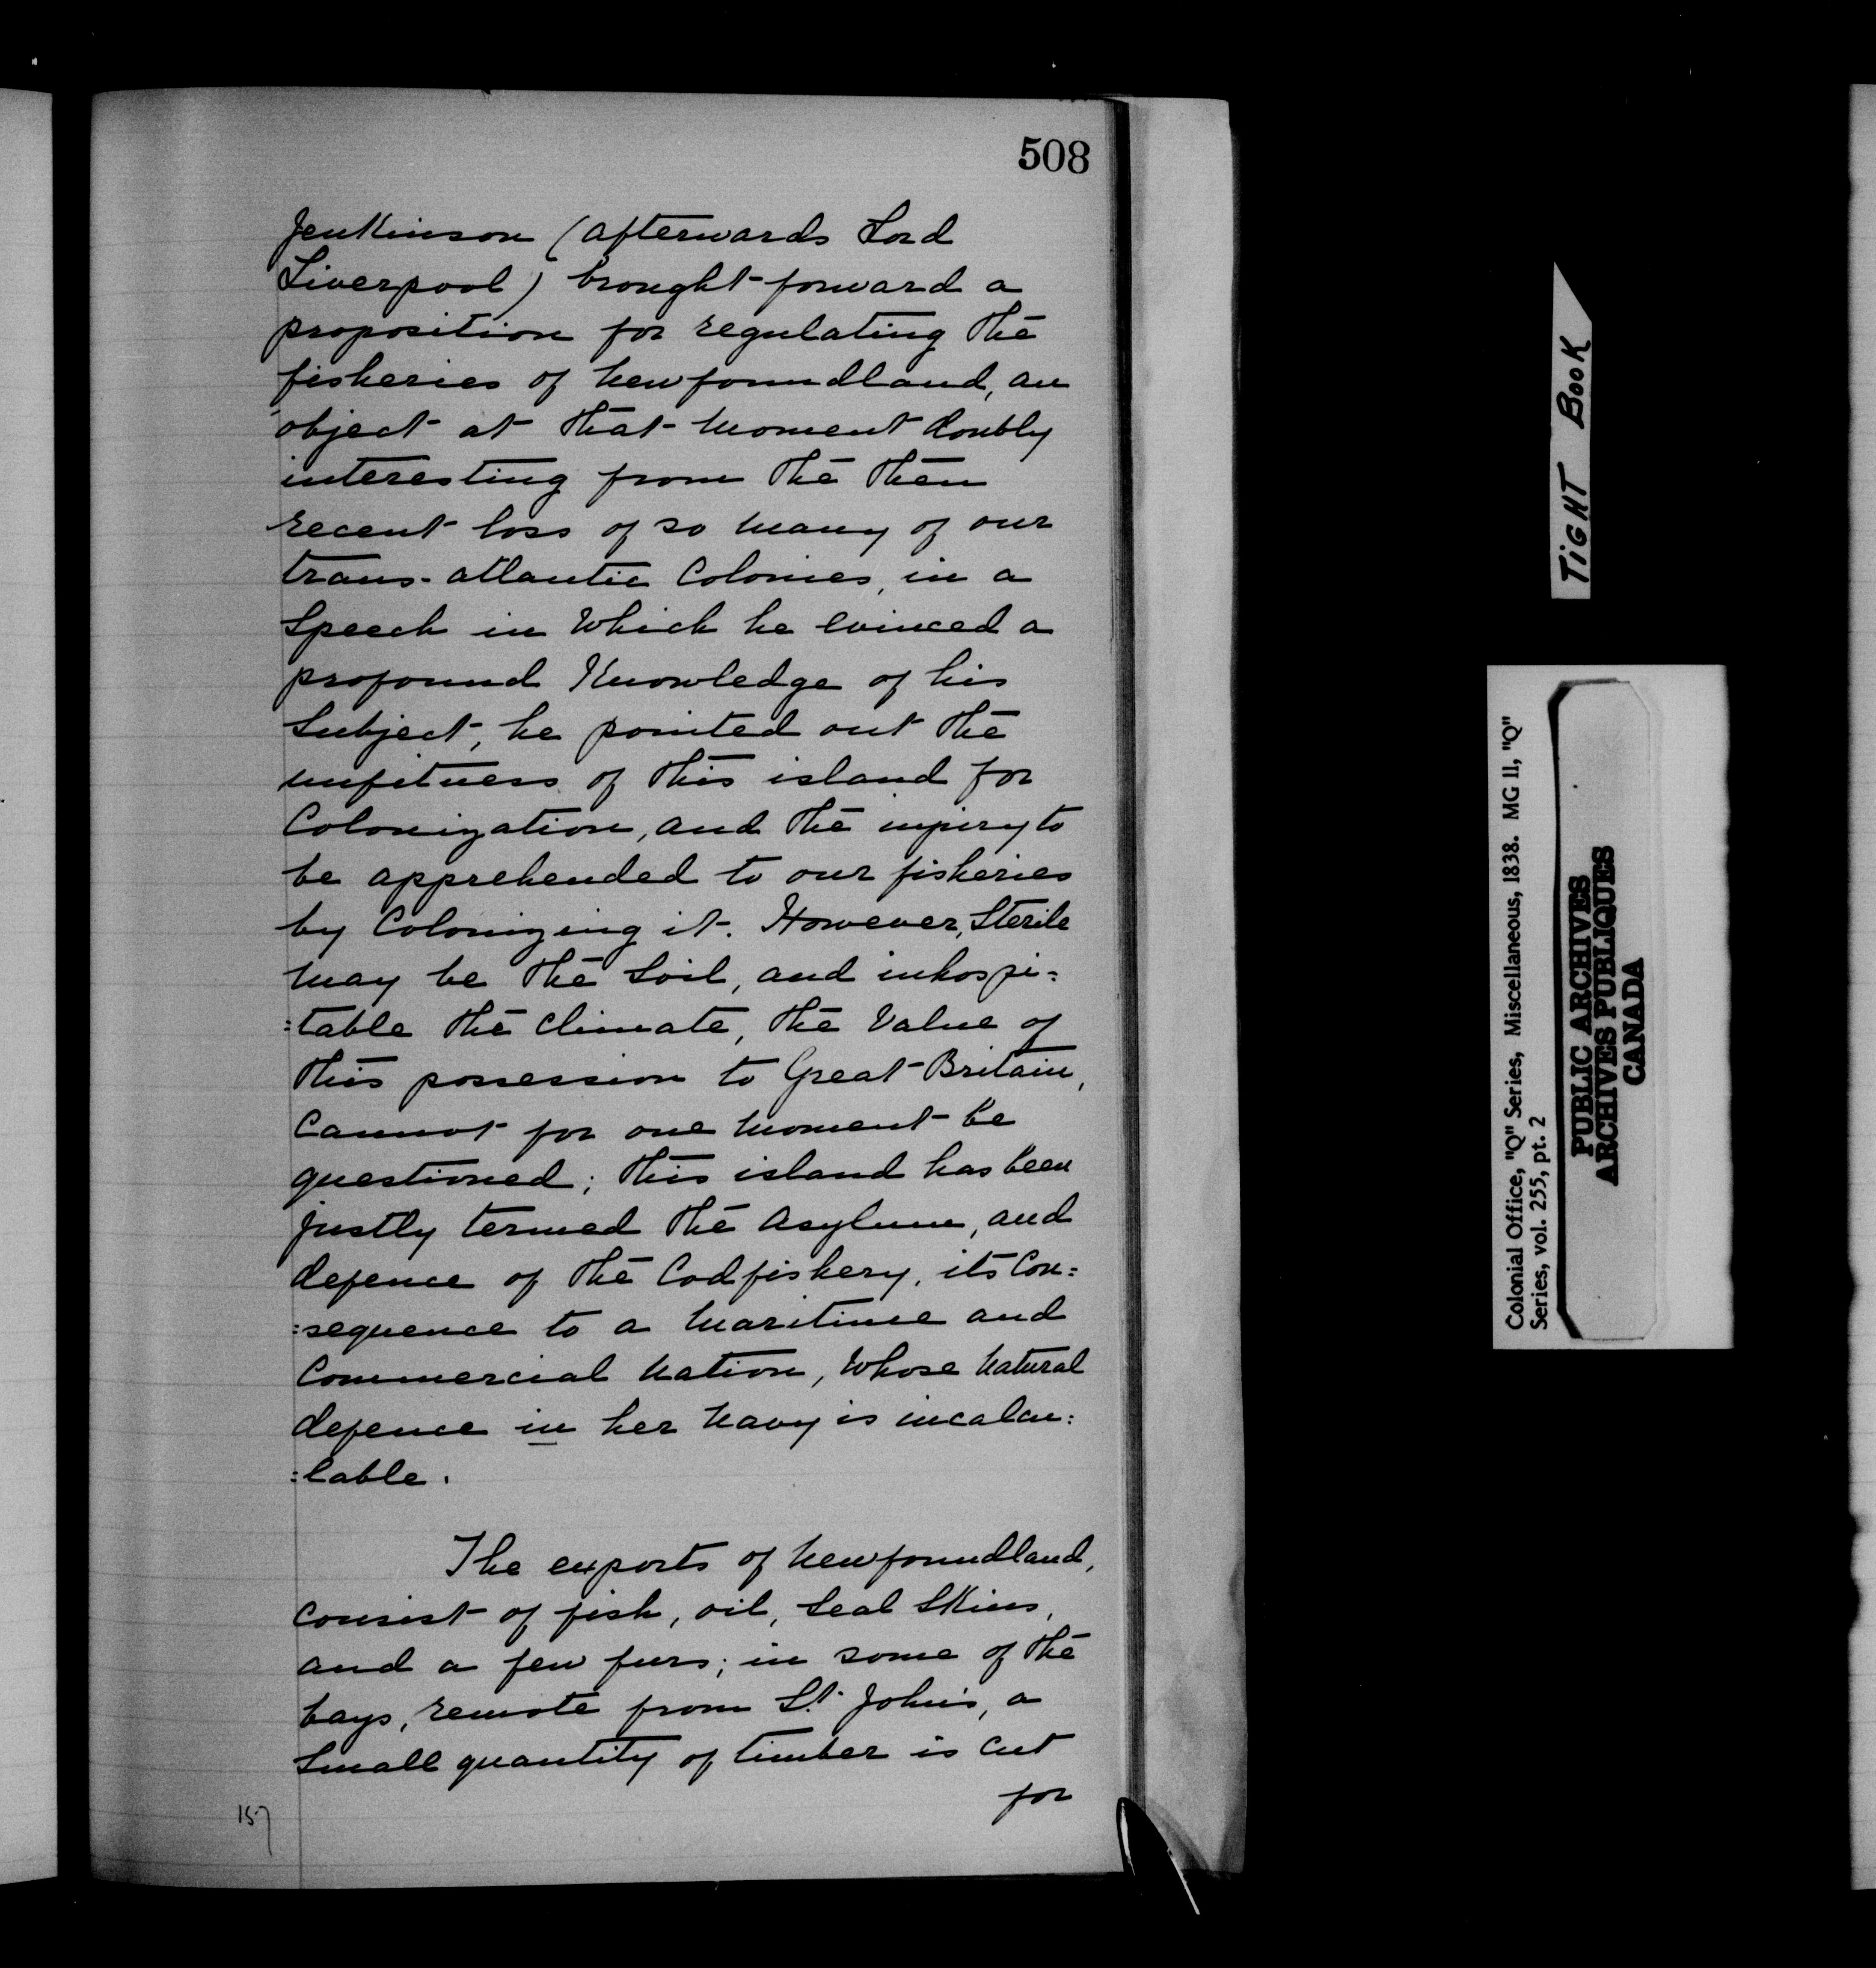 508
Jenkinson (afterwards Lord
Liverpool) brought forward a
proposition for regulating the
fisheries of Newfoundland, an
object at that moment doubly
interesting from the then
recent loss of so many of our
trans-atlantic Colonies, in a
Speech in which he evinced a
profound Knowledge of his
Subject, he pointed out the
unfitness of this island for
Colonization, and the injury to
be apprehended to our fisheries
by Colonizing it. However, Sterile
may be the Soil, and inhospi=
=table the climate, the Value of
this possession to Great Britain,
Cannot for one moment be
questioned; this island has been
justly termed the Asylum, and
defence of the Codfishery, its Con=
=sequence to a Maritime and
Commercial Nation, whose Natural
defence in her Navy is incalcu=
=lable.
The exports of Newfoundland,
Consist of fish, oil, Seal Skins,
and a few furs; in some of the
bays, remote from St. John's, a
Small quantity of timber is Cut
for
157
TIGHT BOOK
Colonial Office, "Q" Series, Miscellaneous, 1838. MG 11, "Q"
Series, vol. 255, pt. 2
PUBLIC ARCHIVES
ARCHIVES PUBLIQUES
CANADA